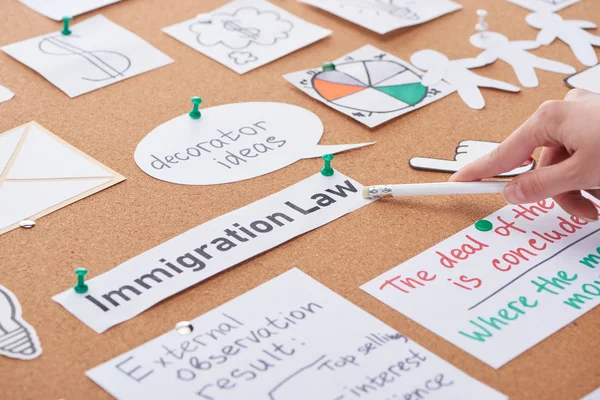 $
$
decorator
ideas
Immigration Law
The deal of the
is conclude
Where the m
mo
External
observation
result:
Top selling
-interest